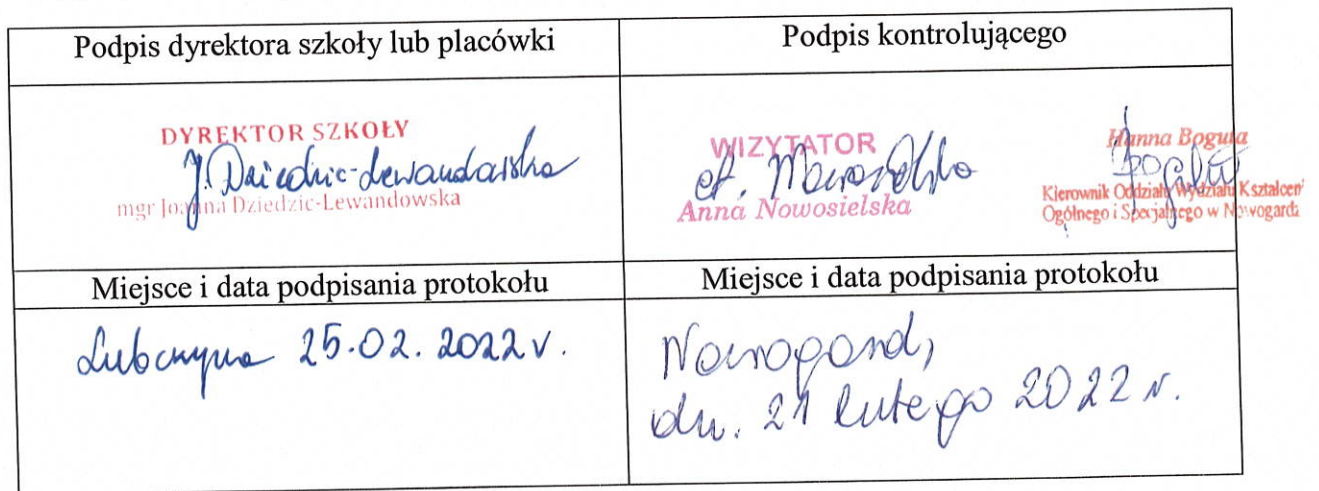 Podpis dyrektora szkoły lub placówki
Podpis kontrolującego
DYREKTOR SZKOŁY
J. Dziedzic-Lewandowska
mgr Joanna Dziedzic-Lewandowska
WIZYTATOR
A. Nowosielska
Anna Nowosielska
Hanna Boguta
Kierownik Oddziału Wydziału Kształceń
Ogólnego i Specjalnego w Nowogardz
Miejsce i data podpisania protokołu
Miejsce i data podpisania protokołu
Lubczyna 25.02.2022 r.
Nowogard,
dn. 21 lutego 2022 r.